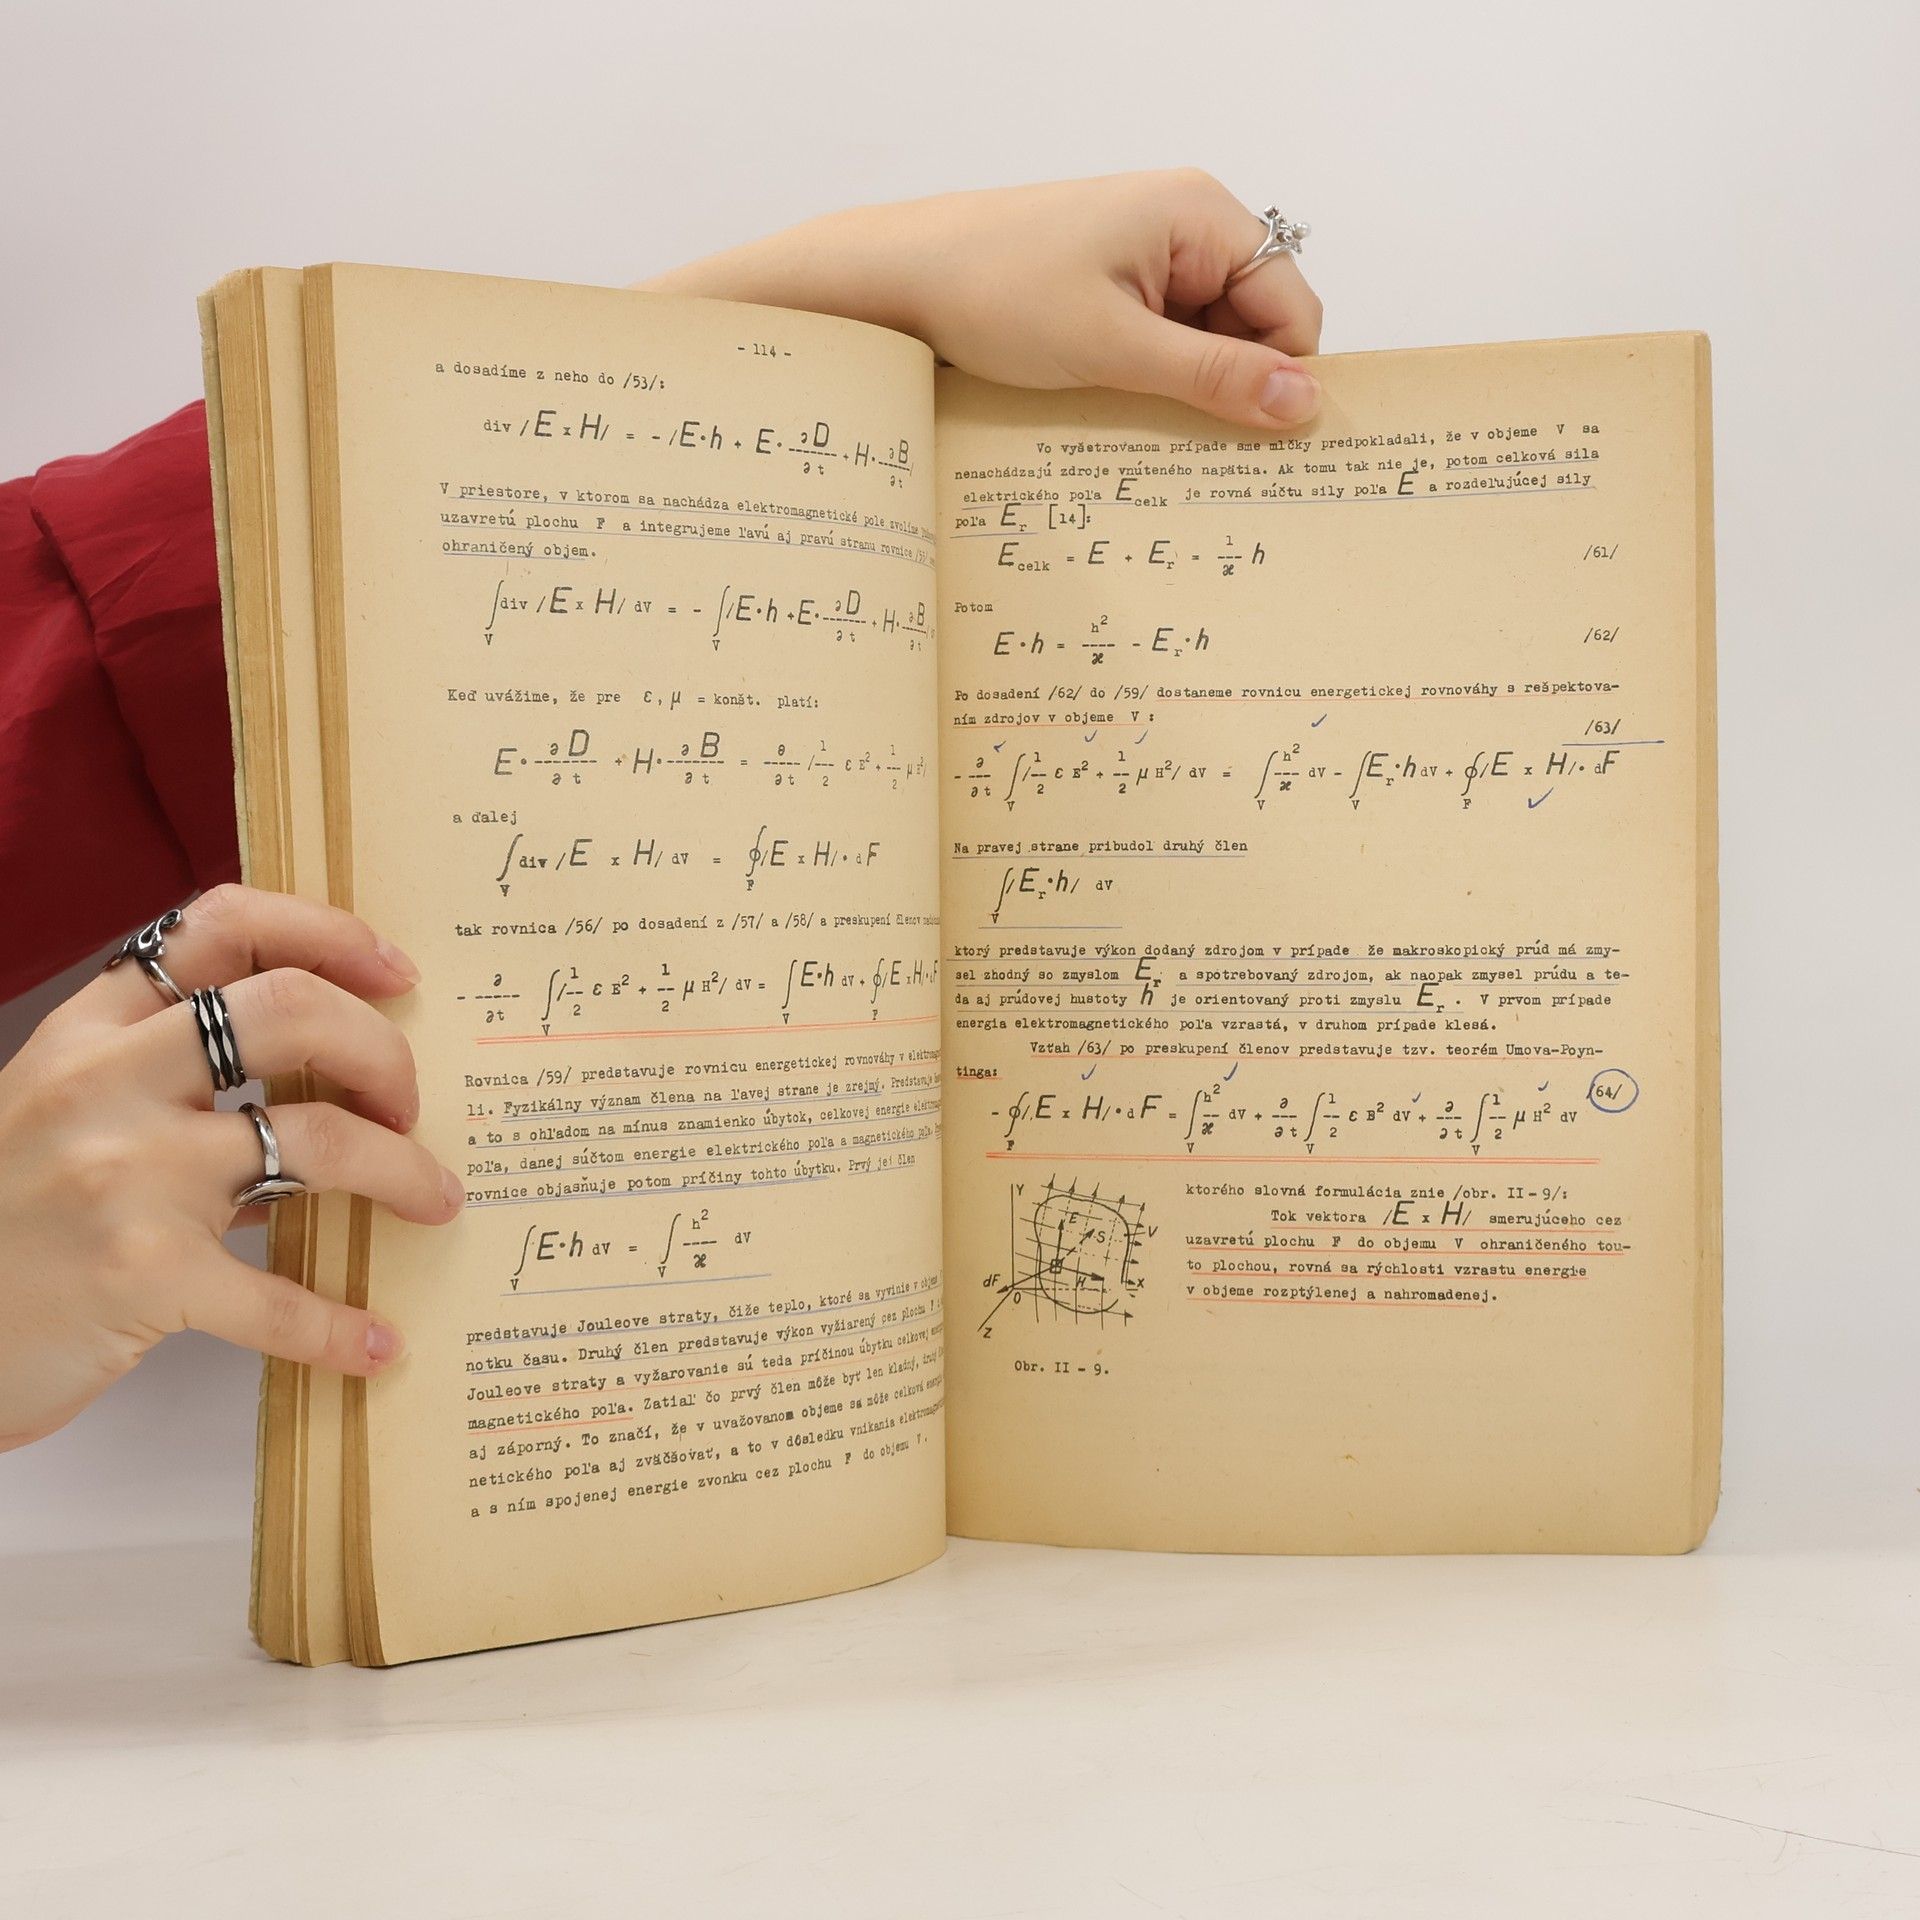 - 114 -
a dosadíme z neho do /53/:
div /E x H/ = - /E·h + E· ∂D/∂t + H· ∂B/∂t /
V priestore, v ktorom sa nachádza elektromagnetické pole zvolíme
uzavretú plochu F a integrujeme ľavú aj pravú stranu rovnice
ohraničený objem.
∫V div /E x H/ dv = - ∫V /E·h + E· ∂D/∂t + H· ∂B/∂t /
Keď uvážime, že pre ε, μ = konšt. platí:
E· ∂D/∂t + H· ∂B/∂t = ∂/∂t /1/2 ε E² + 1/2 μ H²/
a ďalej
∫V div /E x H/ dv = ∮F /E x H/· dF
tak rovnica /56/ po dosadení z /57/ a /58/ a preskupení členov
- ∂/∂t ∫V /1/2 ε E² + 1/2 μ H²/ dv = ∫V E·h dv + ∮F /E x H/· dF
Rovnica /59/ predstavuje rovnicu energetickej rovnováhy v
li. Fyzikálny význam člena na ľavej strane je zrejmý. Predstavuje
a to s ohľadom na mínus znamienko úbytok, celkovej energie
poľa, danej súčtom energie elektrického poľa a magnetického poľa.
rovnice objasňuje potom príčiny tohto úbytku. Prvý jej člen
∫V E·h dv = ∫V h²/ϰ dv
predstavuje Jouleove straty, čiže teplo, ktoré sa vyvinie v objeme
notku času. Druhý člen predstavuje výkon vyžiarený cez plochu F
Jouleove straty a vyžarovanie sú teda príčinou úbytku celkovej
magnetického poľa. Zatiaľ čo prvý člen môže byť len kladný, druhý
aj záporný. To značí, že v uvažovanom objeme sa môže celková
netického poľa aj zväčšovať, a to v dôsledku vnikania
a s ním spojenej energie zvonku cez plochu F do objemu V.
Vo vyšetrovanom prípade sme mlčky predpokladali, že v objeme V sa
nenachádzajú zdroje vnúteného napätia. Ak tomu tak nie je, potom celková sila
elektrického poľa E celk je rovná súčtu sily poľa E a rozdeľujúcej sily
poľa Er [14]:
E celk = E + Er = 1/ϰ h /61/
Potom
E·h = h²/ϰ - Er·h /62/
Po dosadení /62/ do /59/ dostaneme rovnicu energetickej rovnováhy s rešpektova-
ním zdrojov v objeme V :
/63/
- ∂/∂t ∫V /1/2 ε E² + 1/2 μ H²/ dv = ∫V h²/ϰ dv - ∫V Er·h dv + ∮F /E x H/· dF
Na pravej strane pribudol druhý člen
∫V /Er·h/ dv
ktorý predstavuje výkon dodaný zdrojom v prípade že makroskopický prúd má zmy-
sel zhodný so zmyslom Er a spotrebovaný zdrojom, ak naopak zmysel prúdu a te-
da aj prúdovej hustoty h je orientovaný proti zmyslu Er . V prvom prípade
energia elektromagnetického poľa vzrastá, v druhom prípade klesá.
Vzťah /63/ po preskupení členov predstavuje tzv. teorém Umova-Poyn-
tinga:
- ∮F /E x H/· dF = ∫V h²/ϰ dv + ∂/∂t ∫V 1/2 ε E² dv + ∂/∂t ∫V 1/2 μ H² dv /64/
ktorého slovná formulácia znie /obr. II - 9/:
Tok vektora /E x H/ smerujúceho cez
uzavretú plochu F do objemu V ohraničeného tou-
to plochou, rovná sa rýchlosti vzrastu energie
v objeme rozptýlenej a nahromadenej.
Y
E
S
V
H
X
dF
0
Z
Obr. II - 9.